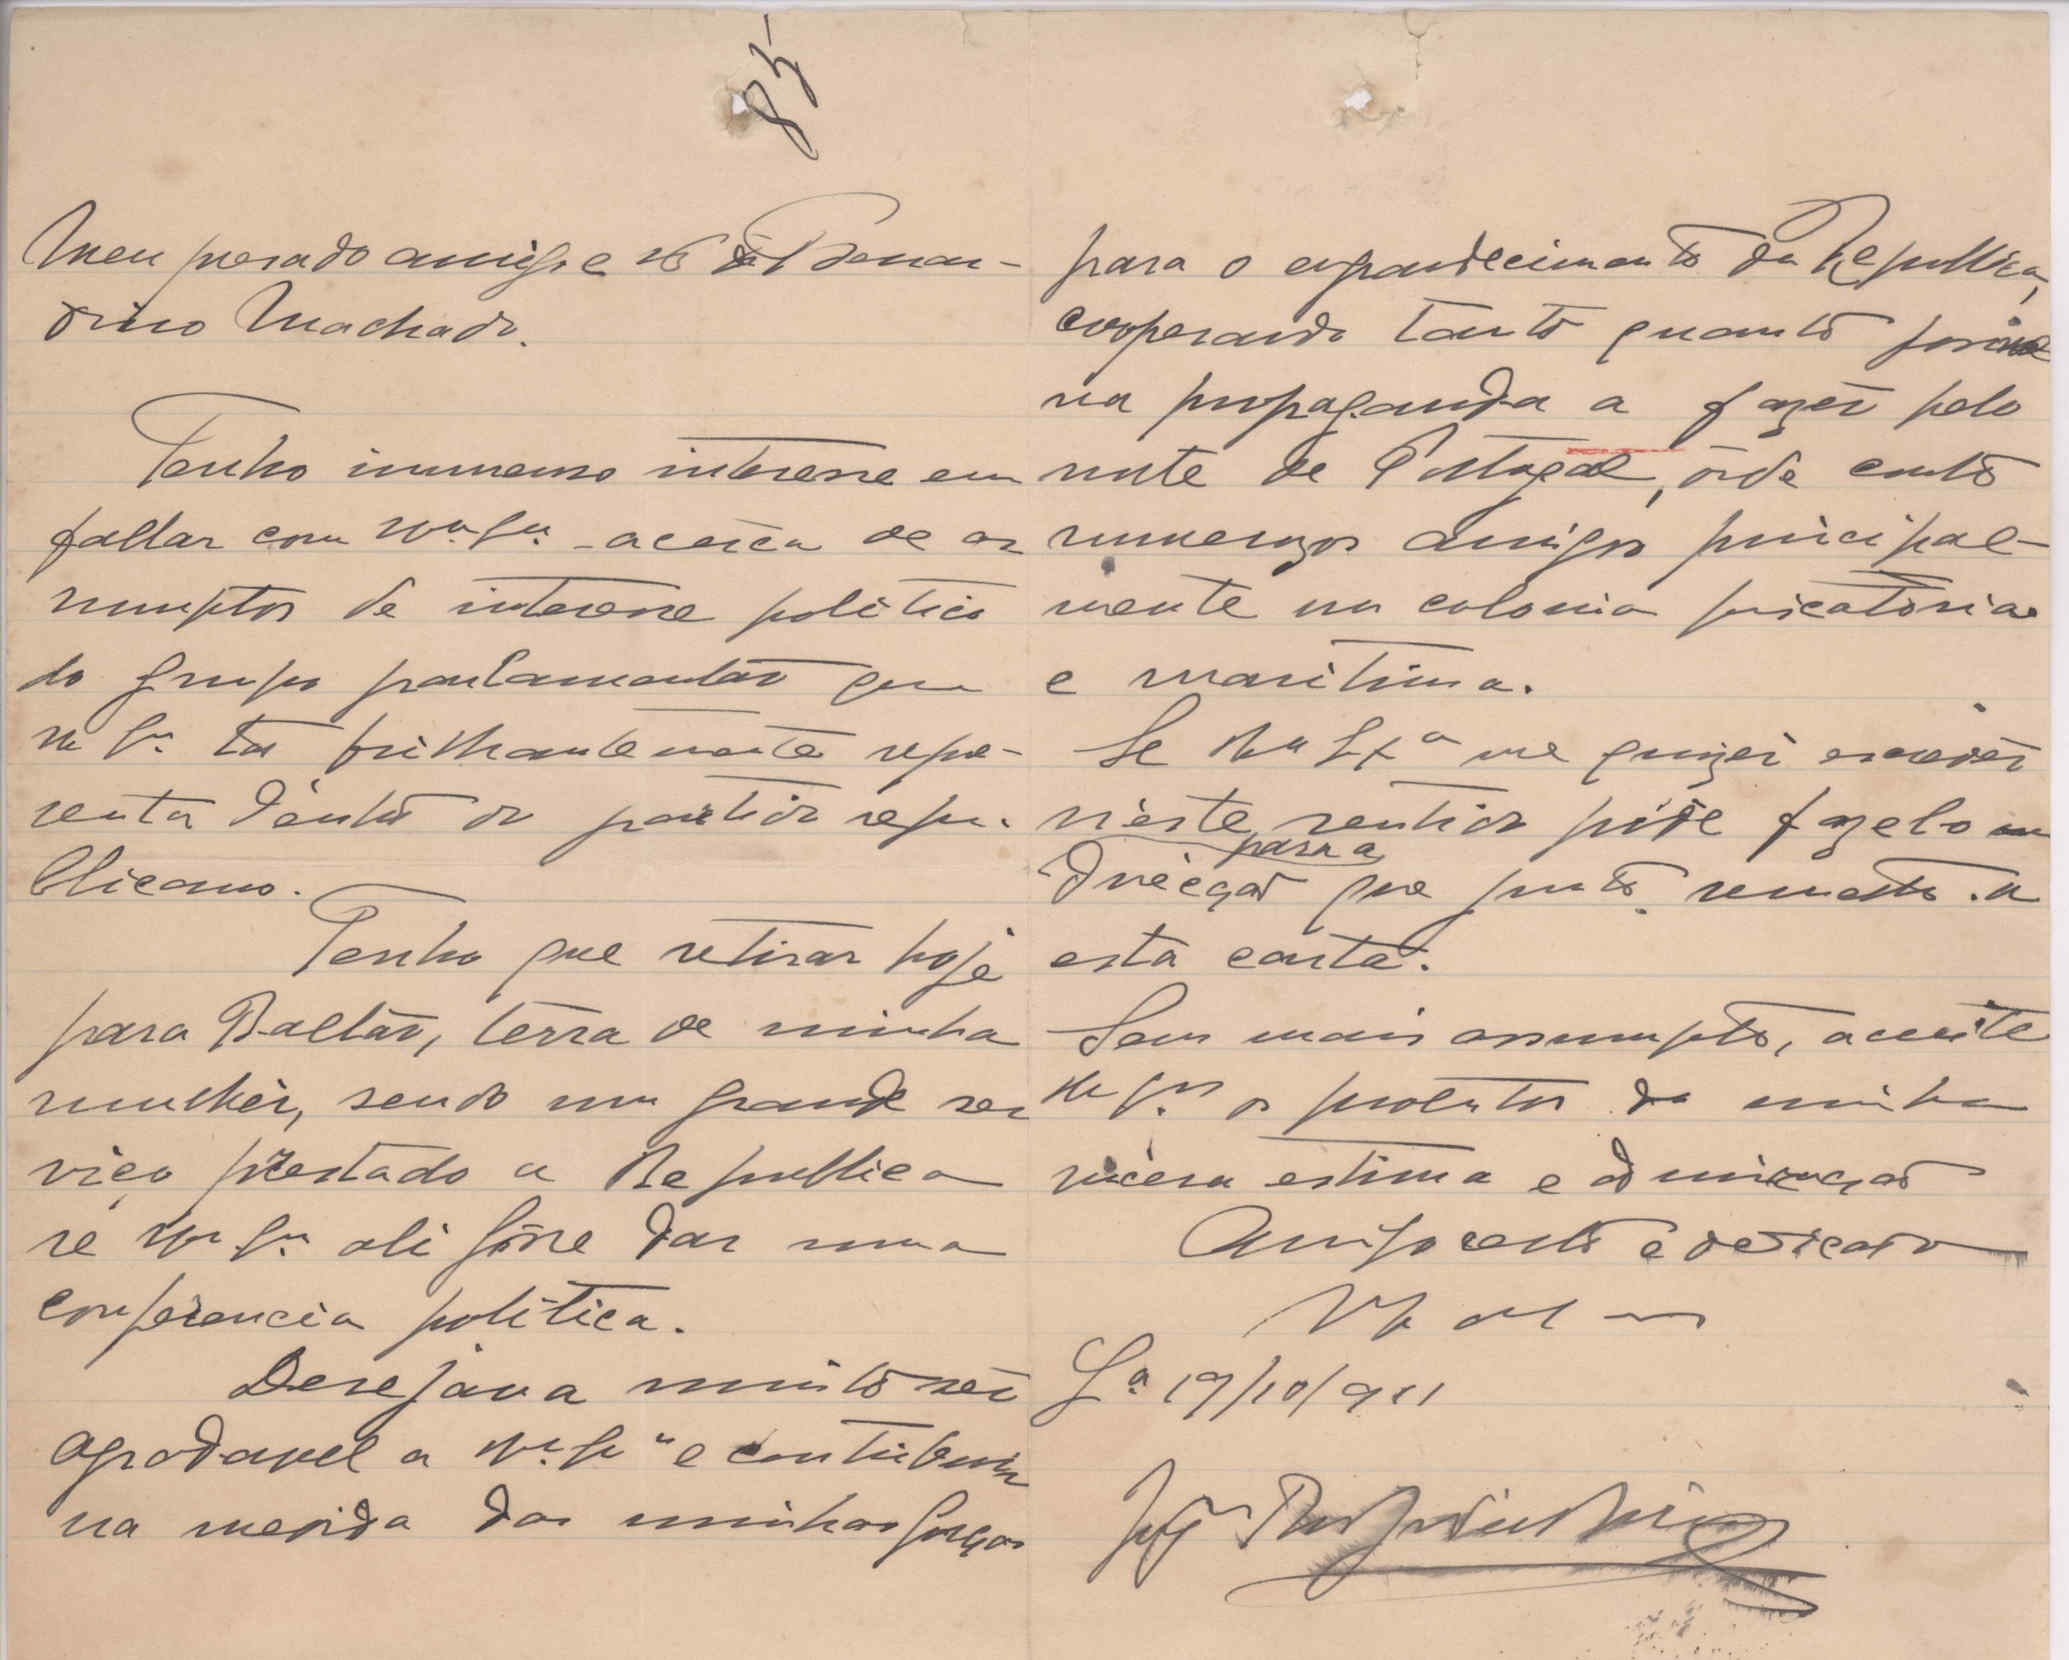 85
Meu presado amigo e Sr Dr Bernar-
dino Machado.
Tenho immenso interesse em
fallar com V.ª Ex.ª acerca de as
sumptos de interesse politico
do grupo parlamentar que
V. Ex.ª tão brilhantemente repre-
senta dentro do partido repu-
blicano.
Tenho que retirar hoje
para Baltar, terra de minha
mulher, sendo um grande ser
viço prestado a Republica
se V.ª Ex.ª ali fosse dar uma
conferencia politica.
Desejava muito ser
agradavel a V.ª Ex.ª e contribuir
na medida das minhas forças
para o engrandecimento da Republica,
cooperando tanto quanto possivel
na propaganda a fazer pelo
norte de Portugal, onde conto
numerozos amigos principal-
mente na colonia piscatoria
e maritima.
Se V.ª Ex.ª me quizer escrever
n'este sentido póde fazelo
para a
direcção que junto remetto a
esta carta.
Sem mais assumpto, acceite
V. Ex.ª os protestos da minha
sincera estima e admiração
Amigo certo e dedicado
19/10/911